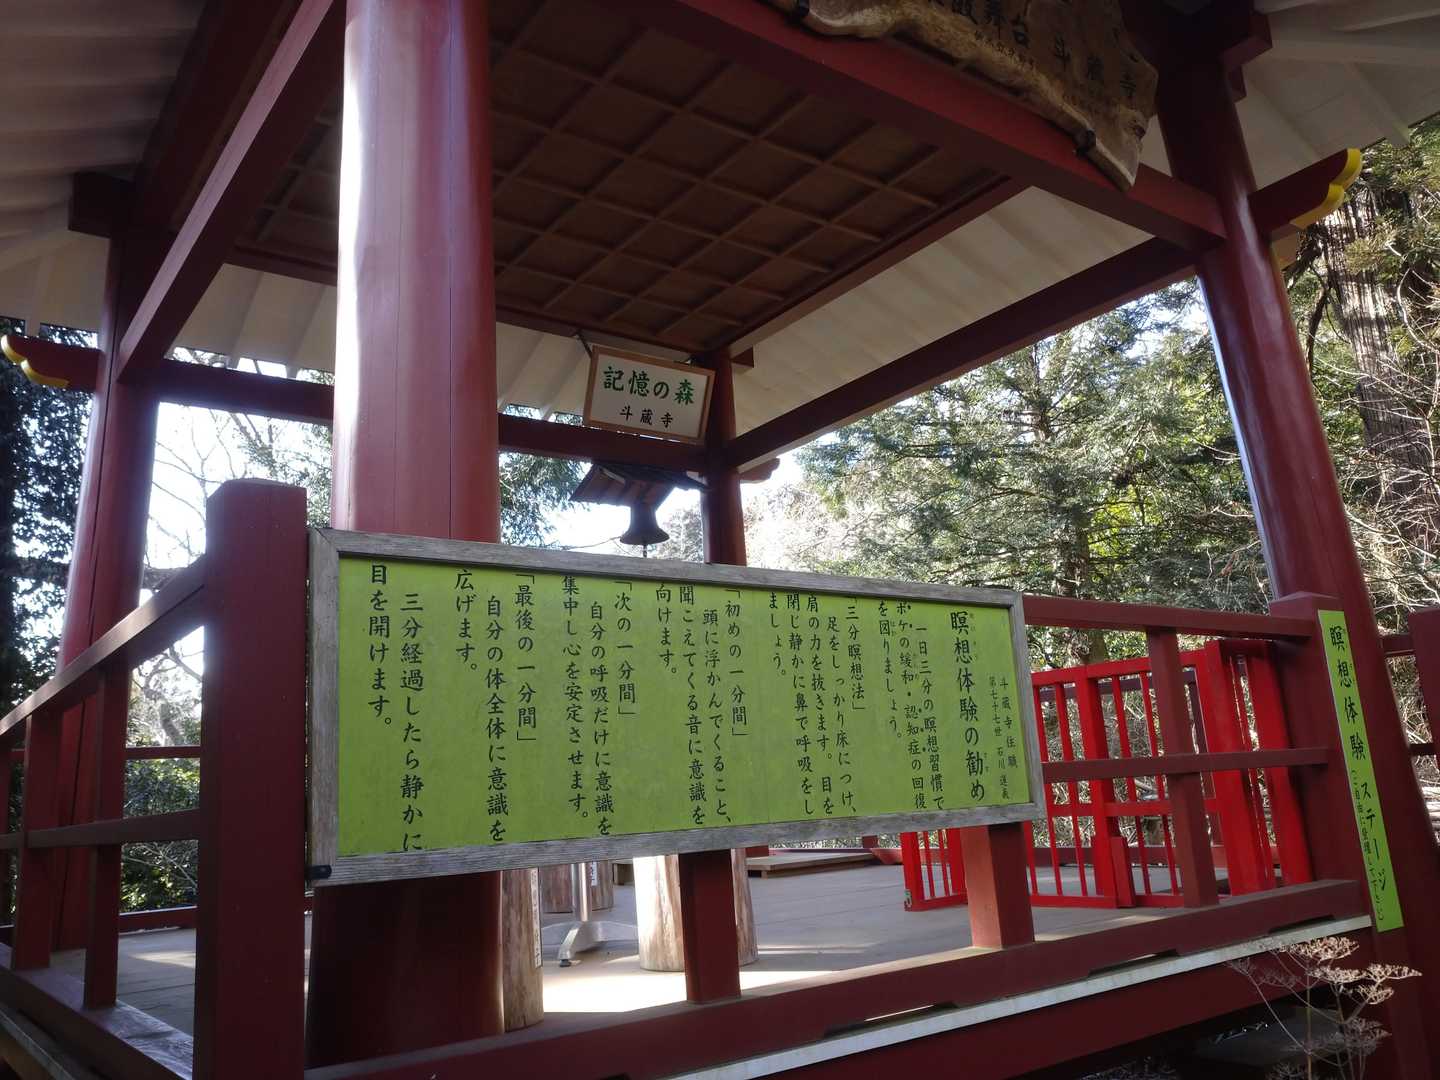 舞台
斗蔵寺
記憶の森
斗蔵寺
瞑想体験の勧め
斗蔵寺住職
第七十七世 石川
一日三分の瞑想習慣で
ボケの緩和・認知症の回復
を図りましょう。
「三分瞑想法」
足をしっかり床につけ、
肩の力を抜きます。目を
閉じ静かに鼻で呼吸をし
ましょう。
「初めの一分間」
頭に浮かんでくること、
聞こえてくる音に意識を
向けます。
「次の一分間」
自分の呼吸だけに意識を
集中し心を安定させます。
「最後の一分間」
自分の体全体に意識を
広げます。
三分経過したら静かに
目を開けます。
瞑想体験ステージ